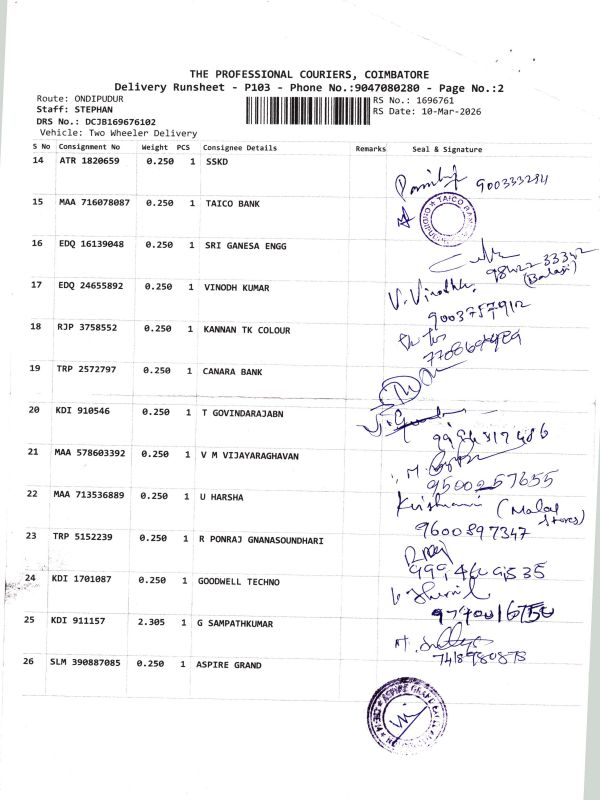 THE PROFESSIONAL COURIERS, COIMBATORE
Delivery Runsheet - P103 - Phone No.:9047080280 - Page No.:2
Route: ONDIPUDUR
Staff: STEPHAN
DRS No.: DCJB169676102
Vehicle: Two Wheeler Delivery
RS No.: 1696761
RS Date: 10-Mar-2026
S No Consignment No Weight PCS Consignee Details Remarks Seal & Signature
14 ATR 1820659 0.250 1 SSKD
900333284
15 MAA 716078087 0.250 1 TAICO BANK
TAICO BANK
16 EDQ 16139048 0.250 1 SRI GANESA ENGG
98422 33342
(Balaji)
17 EDQ 24655892 0.250 1 VINODH KUMAR
V. Vinodh
9003757912
18 RJP 3758552 0.250 1 KANNAN TK COLOUR
19 TRP 2572797 0.250 1 CANARA BANK
20 KDI 910546 0.250 1 T GOVINDARAJABN
9994317486
21 MAA 578603392 0.250 1 V M VIJAYARAGHAVAN
9500257655
22 MAA 713536889 0.250 1 U HARSHA
(Malar Stores)
9600897347
23 TRP 5152239 0.250 1 R PONRAJ GNANASOUNDHARI
24 KDI 1701087 0.250 1 GOODWELL TECHNO
25 KDI 911157 2.305 1 G SAMPATHKUMAR
7418980878
26 SLM 390887085 0.250 1 ASPIRE GRAND
ASPIRE GRAND